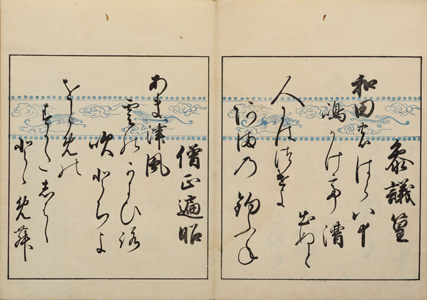 参議篁
和田のはら八十
嶋かけて漕
出ぬと
人にはつけよ
あまの釣ふね
僧正遍昭
あま津風
雲のかよひ路
吹とちよ
をとめの
すかたしはし
とゝめむ